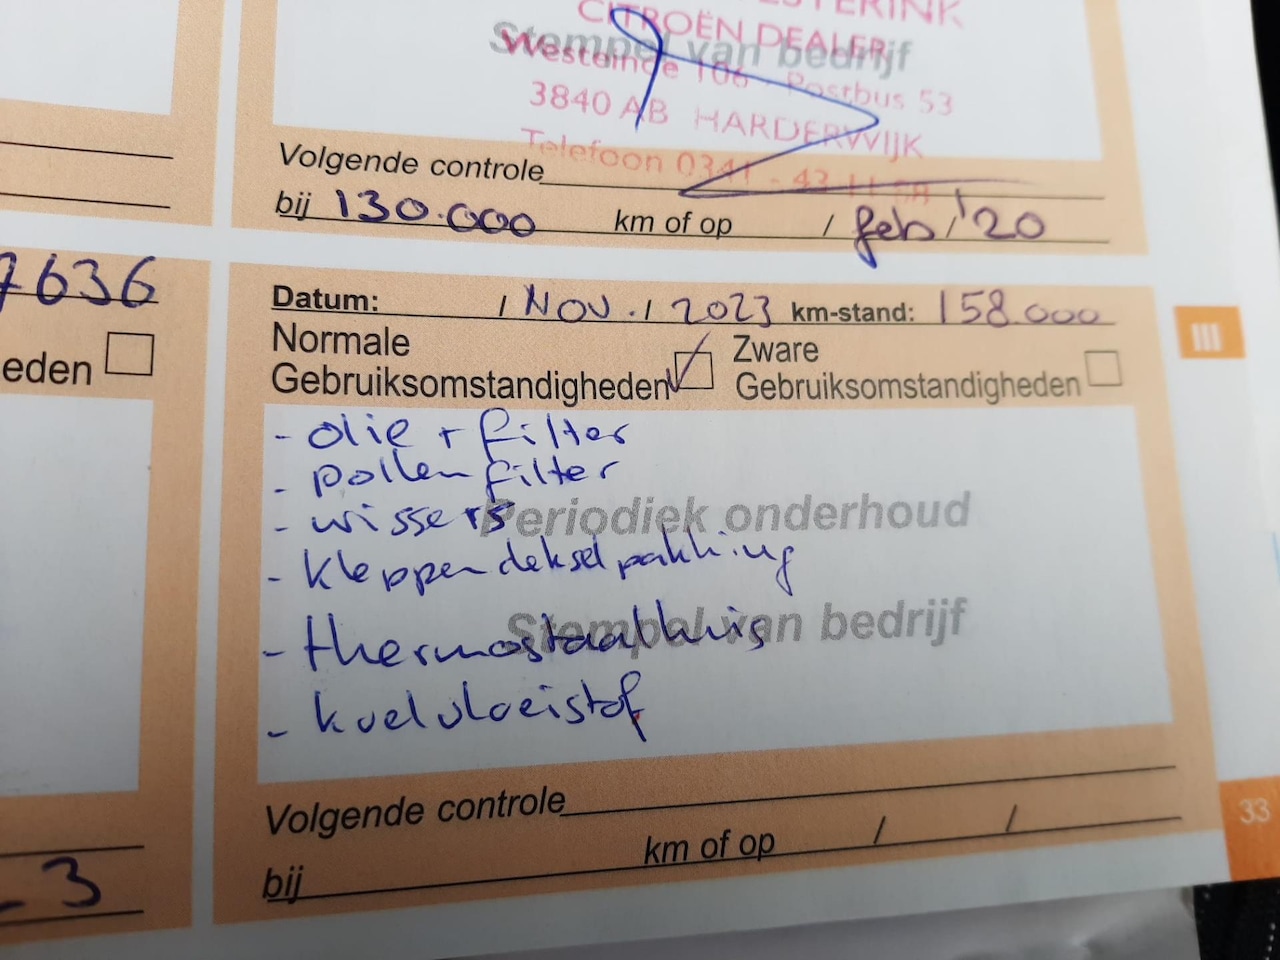 STERINK
CITROËN DEALER
Stempel van bedrijf
Westeinde 106 - Postbus 53
3840 AB HARDERWIJK
Telefoon 0341 - 43
Volgende controle
bij 130.000 km of op / feb / '20
7636
Datum: / NOV. / 2023 km-stand: 158.000
Normale
Gebruiksomstandigheden
Zware
Gebruiksomstandigheden
eden
III
- olie + filter
- pollenfilter
- wissers
Periodiek onderhoud
- kleppendekselpakking
Stempel van bedrijf
- thermostaathuis
- koelvloeistof
Volgende controle
bij km of op / /
33
- 3